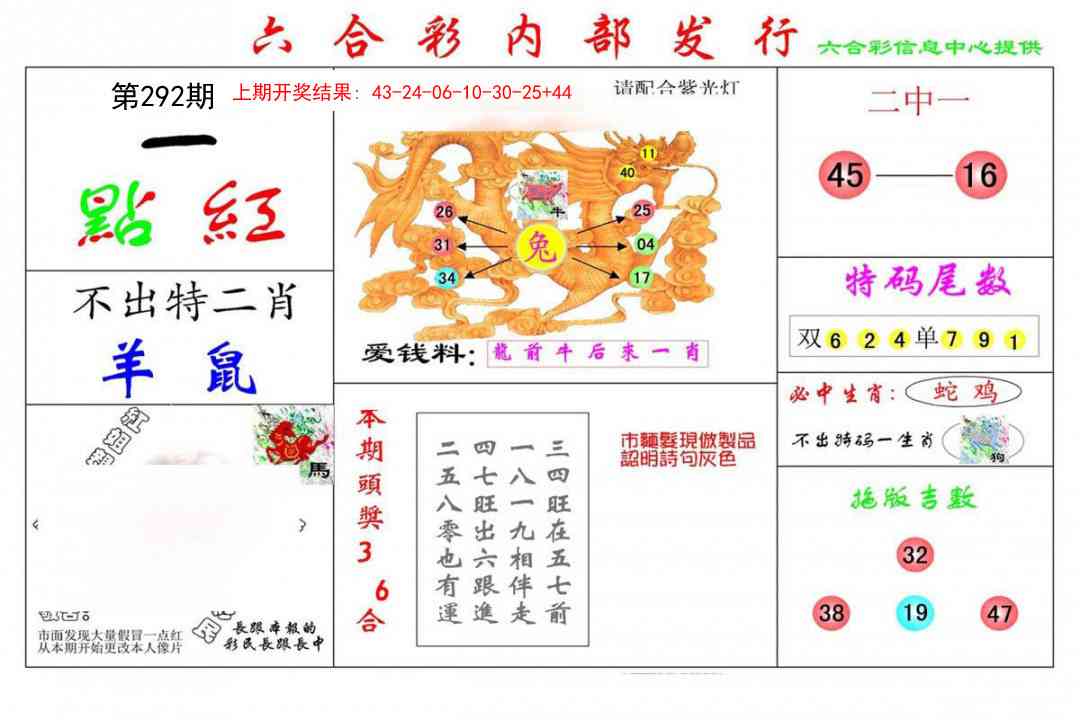 六合彩内部发行
六合彩信息中心提供
第292期
上期开奖结果: 43-24-06-10-30-25+44
请配合紫光灯
一
點紅
不出特二肖
羊 鼠
馬
市面发现大量假冒一点红
从本期开始更改本人像片
長跟本報的
彩民長跟長中
11
40
牛
26
25
31
兔
04
34
17
爱钱料:
龍前牛后来一肖
本期頭獎3 6合
三四旺在五七前
一八一九相伴走
四七旺出六跟進
二五八零也有運
市麵髮現倣製品
認明詩句灰色
二中一
45
16
特码尾数
双 6 2 4 单 7 9 1
必中生肖:
蛇 鸡
不出特码一生肖
狗
拖版吉数
32
38
19
47